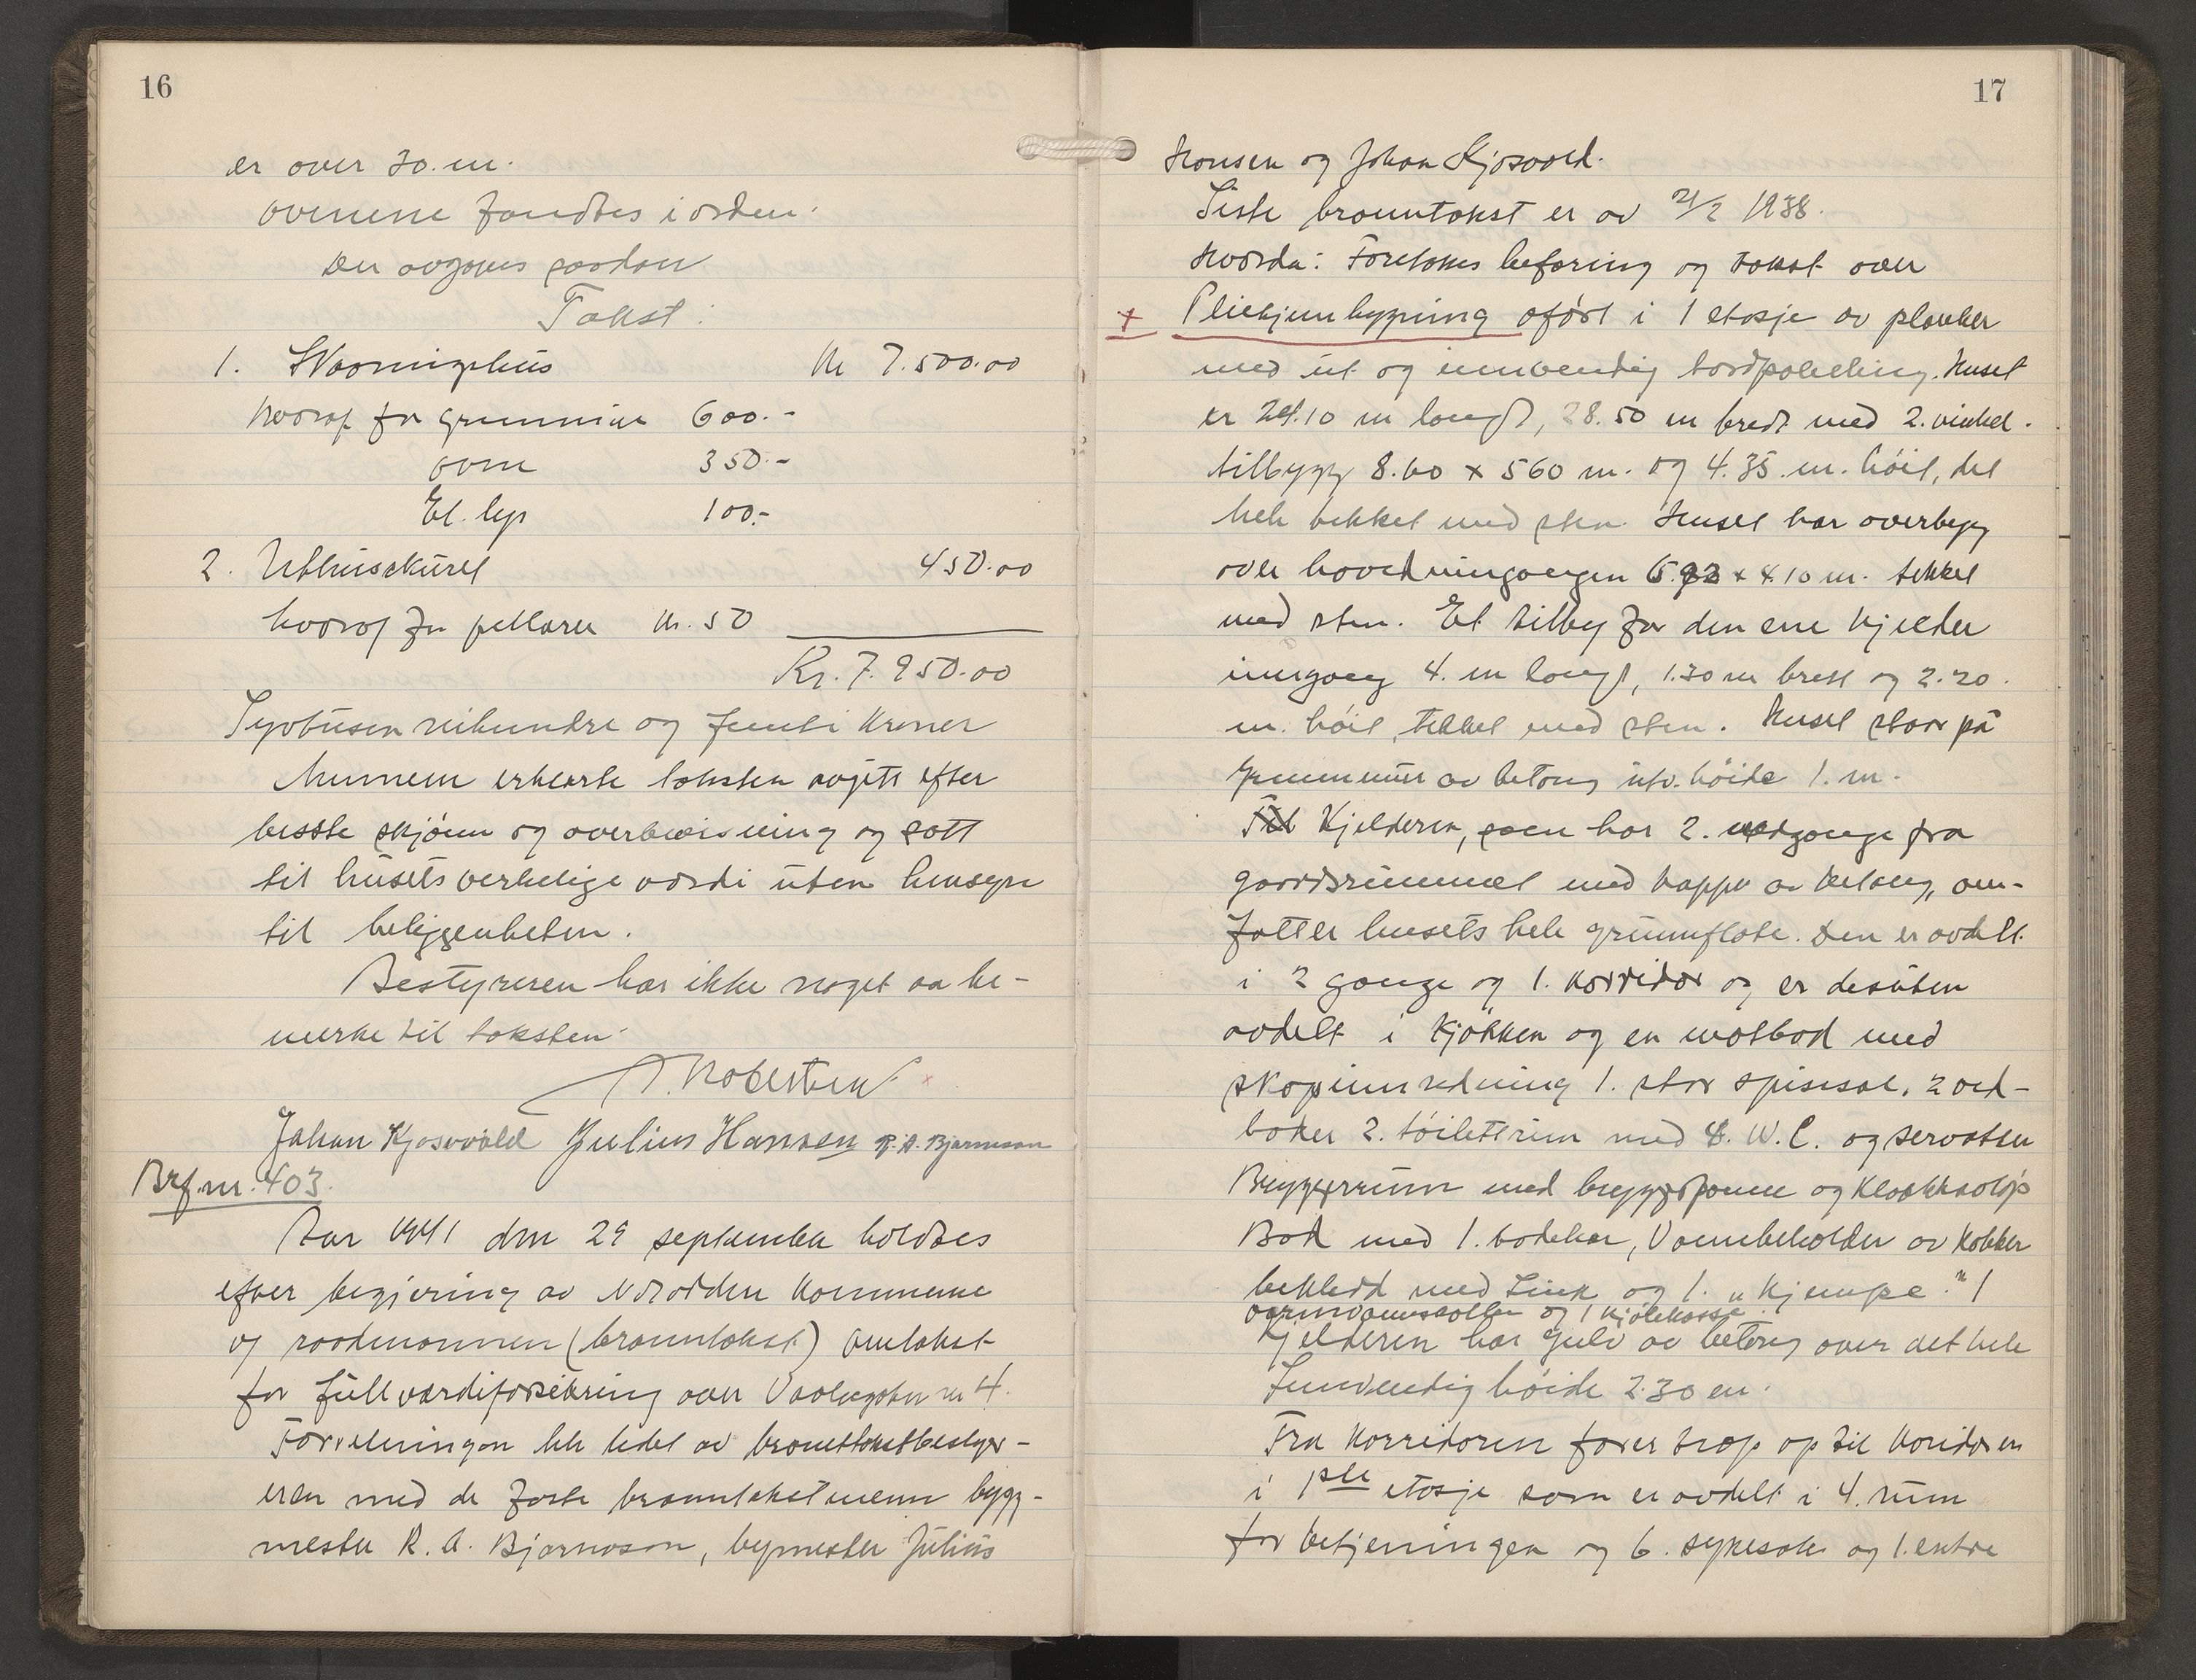 16
er over 30. m.
ovnene fandtes i orden.
Der avgaves saadan
Takst:
1. Vaaningshus Kr 7.500.00
hvorav for grunnmur 600.-
ovne 350.-
El. lys 100.-
2. Uthusskuret 450.00
hvorav for pillarer Kr. 50
Kr. 7.950.00
Syvtusen nihundre og femti kroner
Mennene erklærte taksten avgitt efter
beste skjønn og overbevisning og satt
til husets verkelige værdi uten hensyn
til beliggenheten.
Bestyreren har ikke noget aa be-
merke til taksten.
T. Robertsen
Johan Kjosvold Julius Hansen R. A. Bjarnason
Brf. nr. 403.
Aar 1941 den 29 september holdtes
efter begjering av Notodden Kommune
og raadmannen (branntakst) omtakst
for fullværdiforsikring over nr 4.
Forretningen ble ledet av branntakstbestyr-
eren med de faste branntakstmenn bygg-
mester R. A. Bjarnason, bymester Julius
17
Hansen og Johan Kjosvold.
Siste branntakst er av 21/2 1938.
Hvorda: Foretokes befaring og takst over
+ Pliehjembygning oført i 1 etasje av planker
med ut og innvendig bordpaneling. Huset
er 24.10 m langt, 28.50 m bredt med 2. vinkel.
tilbygg 8.60 x 560 m. og 4.35 m. høit, det
hele tekket med sten. Huset har overbygg
over hovedinngangen x 4.10 m. tekket
med sten. Et tilbyg for den ene kjelder
inngang 4. m langt, 1.30 m brett og 2.20.
m. høit, tekket med sten. Huset staar på
grunnmur av betong utv. høide 1. m.
Kjelderen, som har 2. nedgange fra
gaardsrummet med trapper av betong, om-
fatter husets hele grunnflate. Den er avdelt
i 2 gange og 1. korridor og er desuten
avdelt i kjøkken og en matbod med
skapinnredning 1. stor spisesal, 2 ved-
boder 2. toilettrum med 4. W.C. og servanter
Bryggerrum med bryggepanne og Kloakkavløp
Bad med 1. badekar, Vannbeholder av kobber
bekledd med Sink og 1. "Kjempe". 1
varmvannskolbe og 1 kjølekasse.
Kjelderen har gulv av betong over det hele
Innvendig høide 2.30 m.
Fra korridoren fører trap op til koridoren
i 1ste etasje som er avdelt i 4. rum
for betjeningen og 6. sykesale og 1. entre